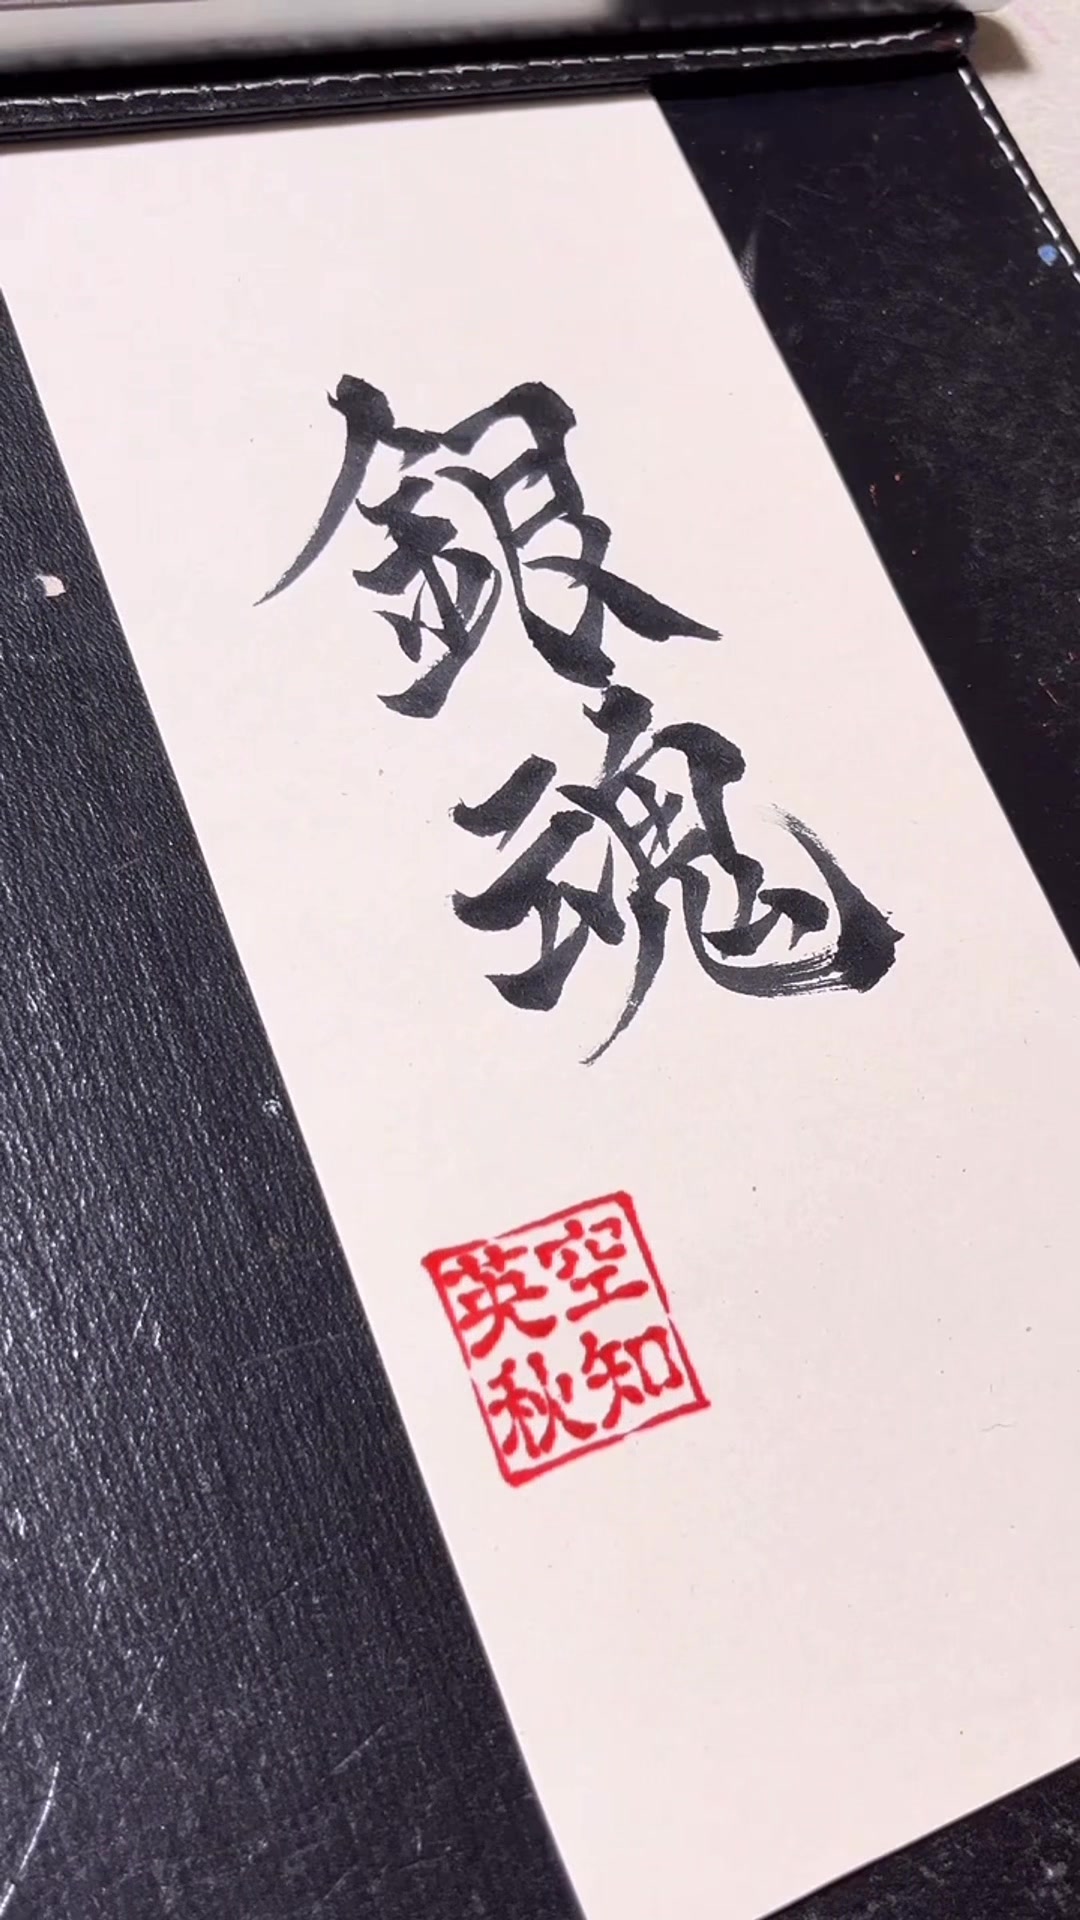 銀魂
空知
英秋